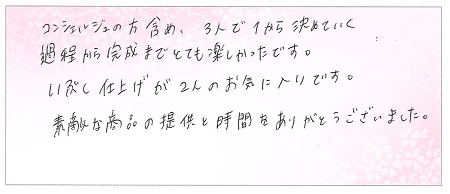 コンシェルジュの方含め、3人で1から決めていく
過程から完成までとても楽しかったです。
いぶし仕上げが2人のお気に入りです。
素敵な商品の提供と時間をありがとうございました。